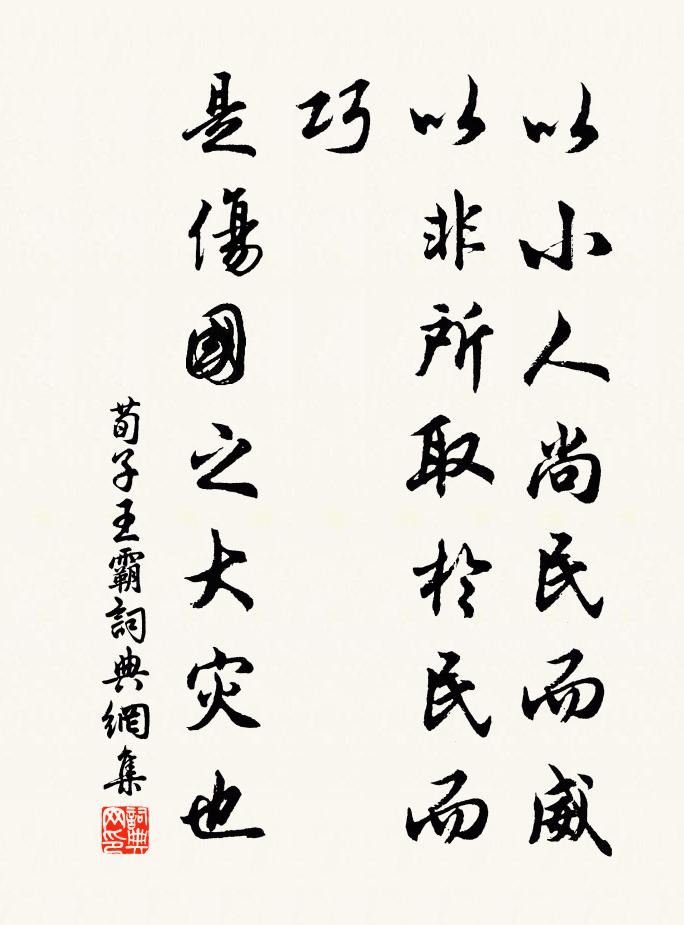 以小人尚民而威
以非所取於民而
巧
是傷國之大灾也
荀子王霸詞典網集
詞典
网印